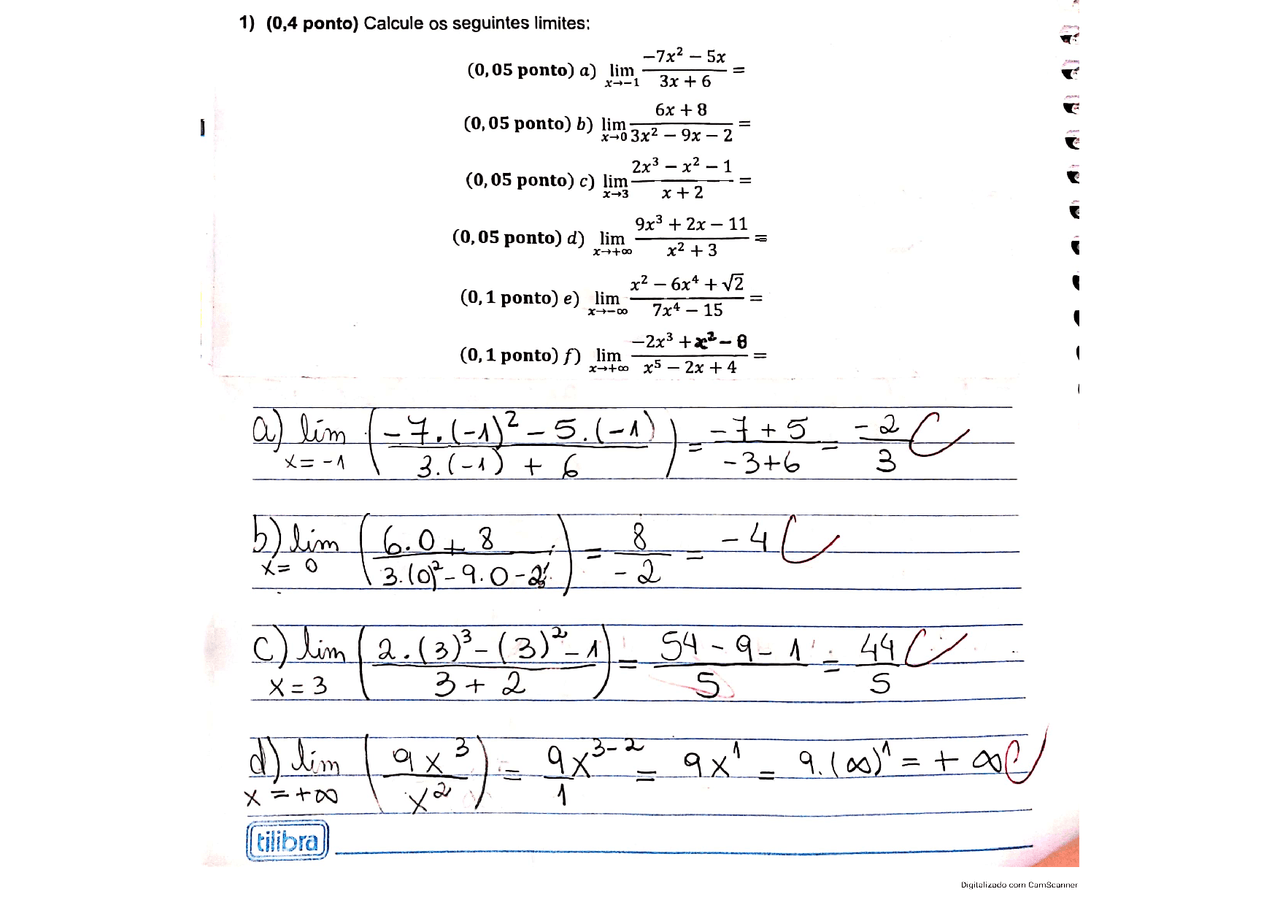 1) (0,4 ponto) Calcule os seguintes limites:
(0,05 ponto) a) lim x→−1 (−7x² − 5x)/(3x + 6) =
(0,05 ponto) b) lim x→0 (6x + 8)/(3x² − 9x − 2) =
(0,05 ponto) c) lim x→3 (2x³ − x² − 1)/(x + 2) =
(0,05 ponto) d) lim x→+∞ (9x³ + 2x − 11)/(x² + 3) =
(0,1 ponto) e) lim x→−∞ (x² − 6x⁴ + √2)/(7x⁴ − 15) =
(0,1 ponto) f) lim x→+∞ (−2x³ + x² − 8)/(x⁵ − 2x + 4) =
a) lim x = −1 ((−7.(−1)² − 5.(−1))/(3.(−1) + 6)) = (−7 + 5)/(−3+6) = −2/3 C
b) lim x = 0 ((6.0 + 8)/(3.(0)² − 9.0 − 2)) = 8/−2 = −4 C
c) lim x = 3 ((2.(3)³ − (3)² − 1)/(3 + 2)) = (54 − 9 − 1)/5 = 44/5 C
d) lim x = +∞ (9x³/x²) = 9x³⁻²/1 = 9x¹ = 9.(∞)¹ = + ∞ C
tilibra
Digitalizado com CamScanner